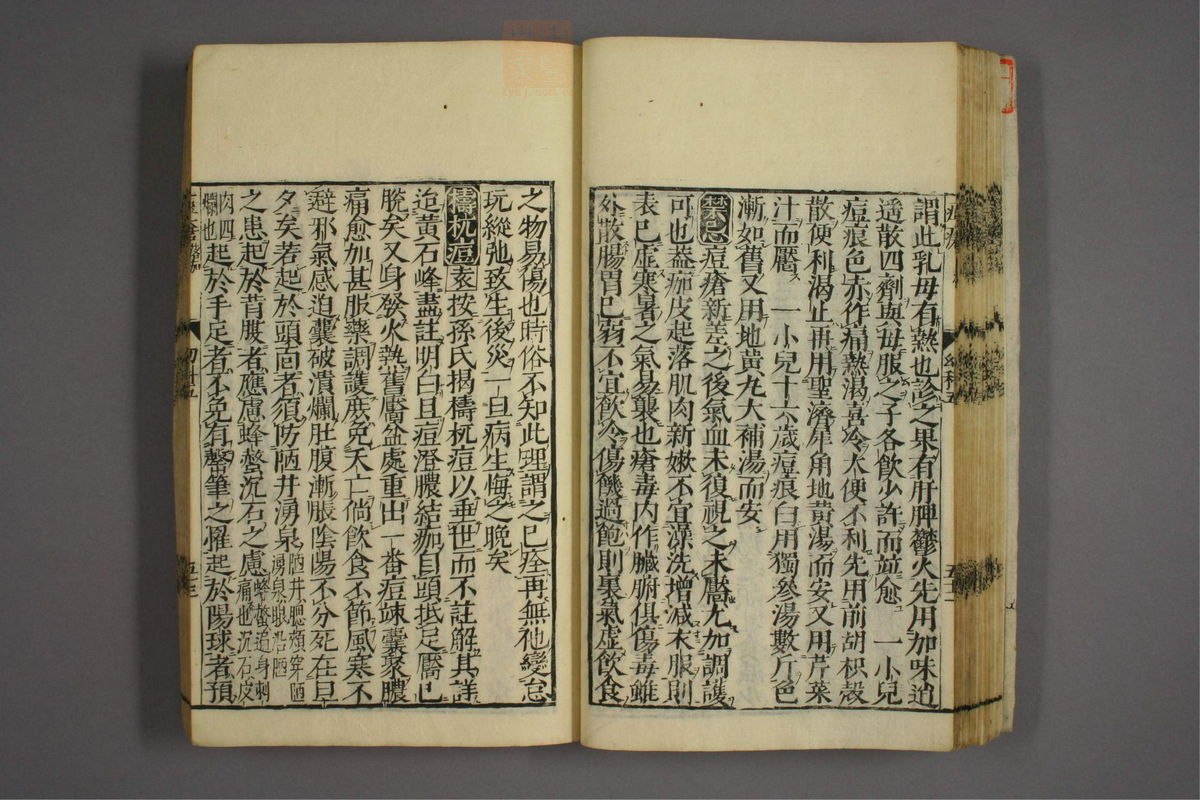 謂此乳母有熱也診之果有肝脾鬱火先用加味逍
遥散四劑與母服之子各飲少許而竝愈 一小兒
痘痕色赤作痛熱渴喜冷大便不利先用前胡枳殼
散便利渴止再用聖濟犀角地黄湯而安又用芹菜
汁而靨 一小兒十六歲痘痕白用獨參湯數斤色
漸如舊又用地黄丸大補湯而安
禁忌 痘瘡新差之後氣血未復視之未靨尤加調護
可也蓋痂皮起落肌肉新嫩不宜澡洗增減未服則
表已虛寒暑之氣易襲也瘡毒内作臟腑俱傷毒雖
外散腸胃已弱不宜飲冷傷饑過飽則裏氣虛飲食
之物易傷也時俗不知此理謂之已痊再無他變怠
玩縱弛致生後災一旦病生悔之晚矣
檮杌痘 袁按孫氏揭檮杌痘以垂世而不註解其詳
迨黄石峰盡註明白且痘澄膿結痂自頭抵足靨已
脫矣又身發火熱舊靨盆處重出一番痘竦囊聚膿
痛愈加甚服藥調護庶免夭亡倘飲食不節風寒不
避邪氣感迫囊破潰爛肚腹漸脹陰陽不分死在旦
夕矣若起於頭面者須防陋井湧泉 陋井腮頰穿陋 湧泉眼沿陋
之患起於背腹者應慮蜂螫沉石之慮 蜂螫追身刺 痛也沉石皮
肉四 爛也 起於手足者不免有罄筆之懼起於陽球者預
幼科五
五十三